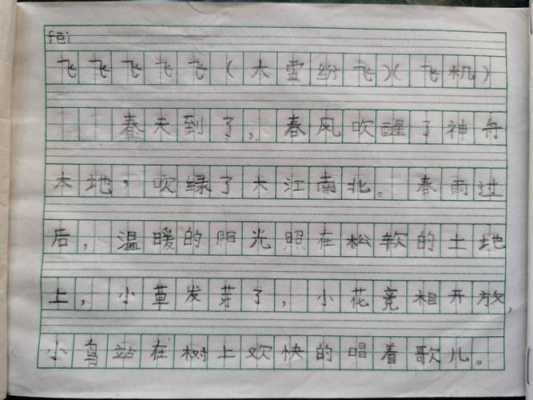 fēi
飞飞飞飞飞(大雪纷飞)(飞机)
春天到了,春风吹醒了神舟
大地,吹绿了大江南北。春雨过
后,温暖的阳光照在松软的土地
上,小草发芽了,小花竞相开放,
小鸟站在树上欢快的唱着歌儿。